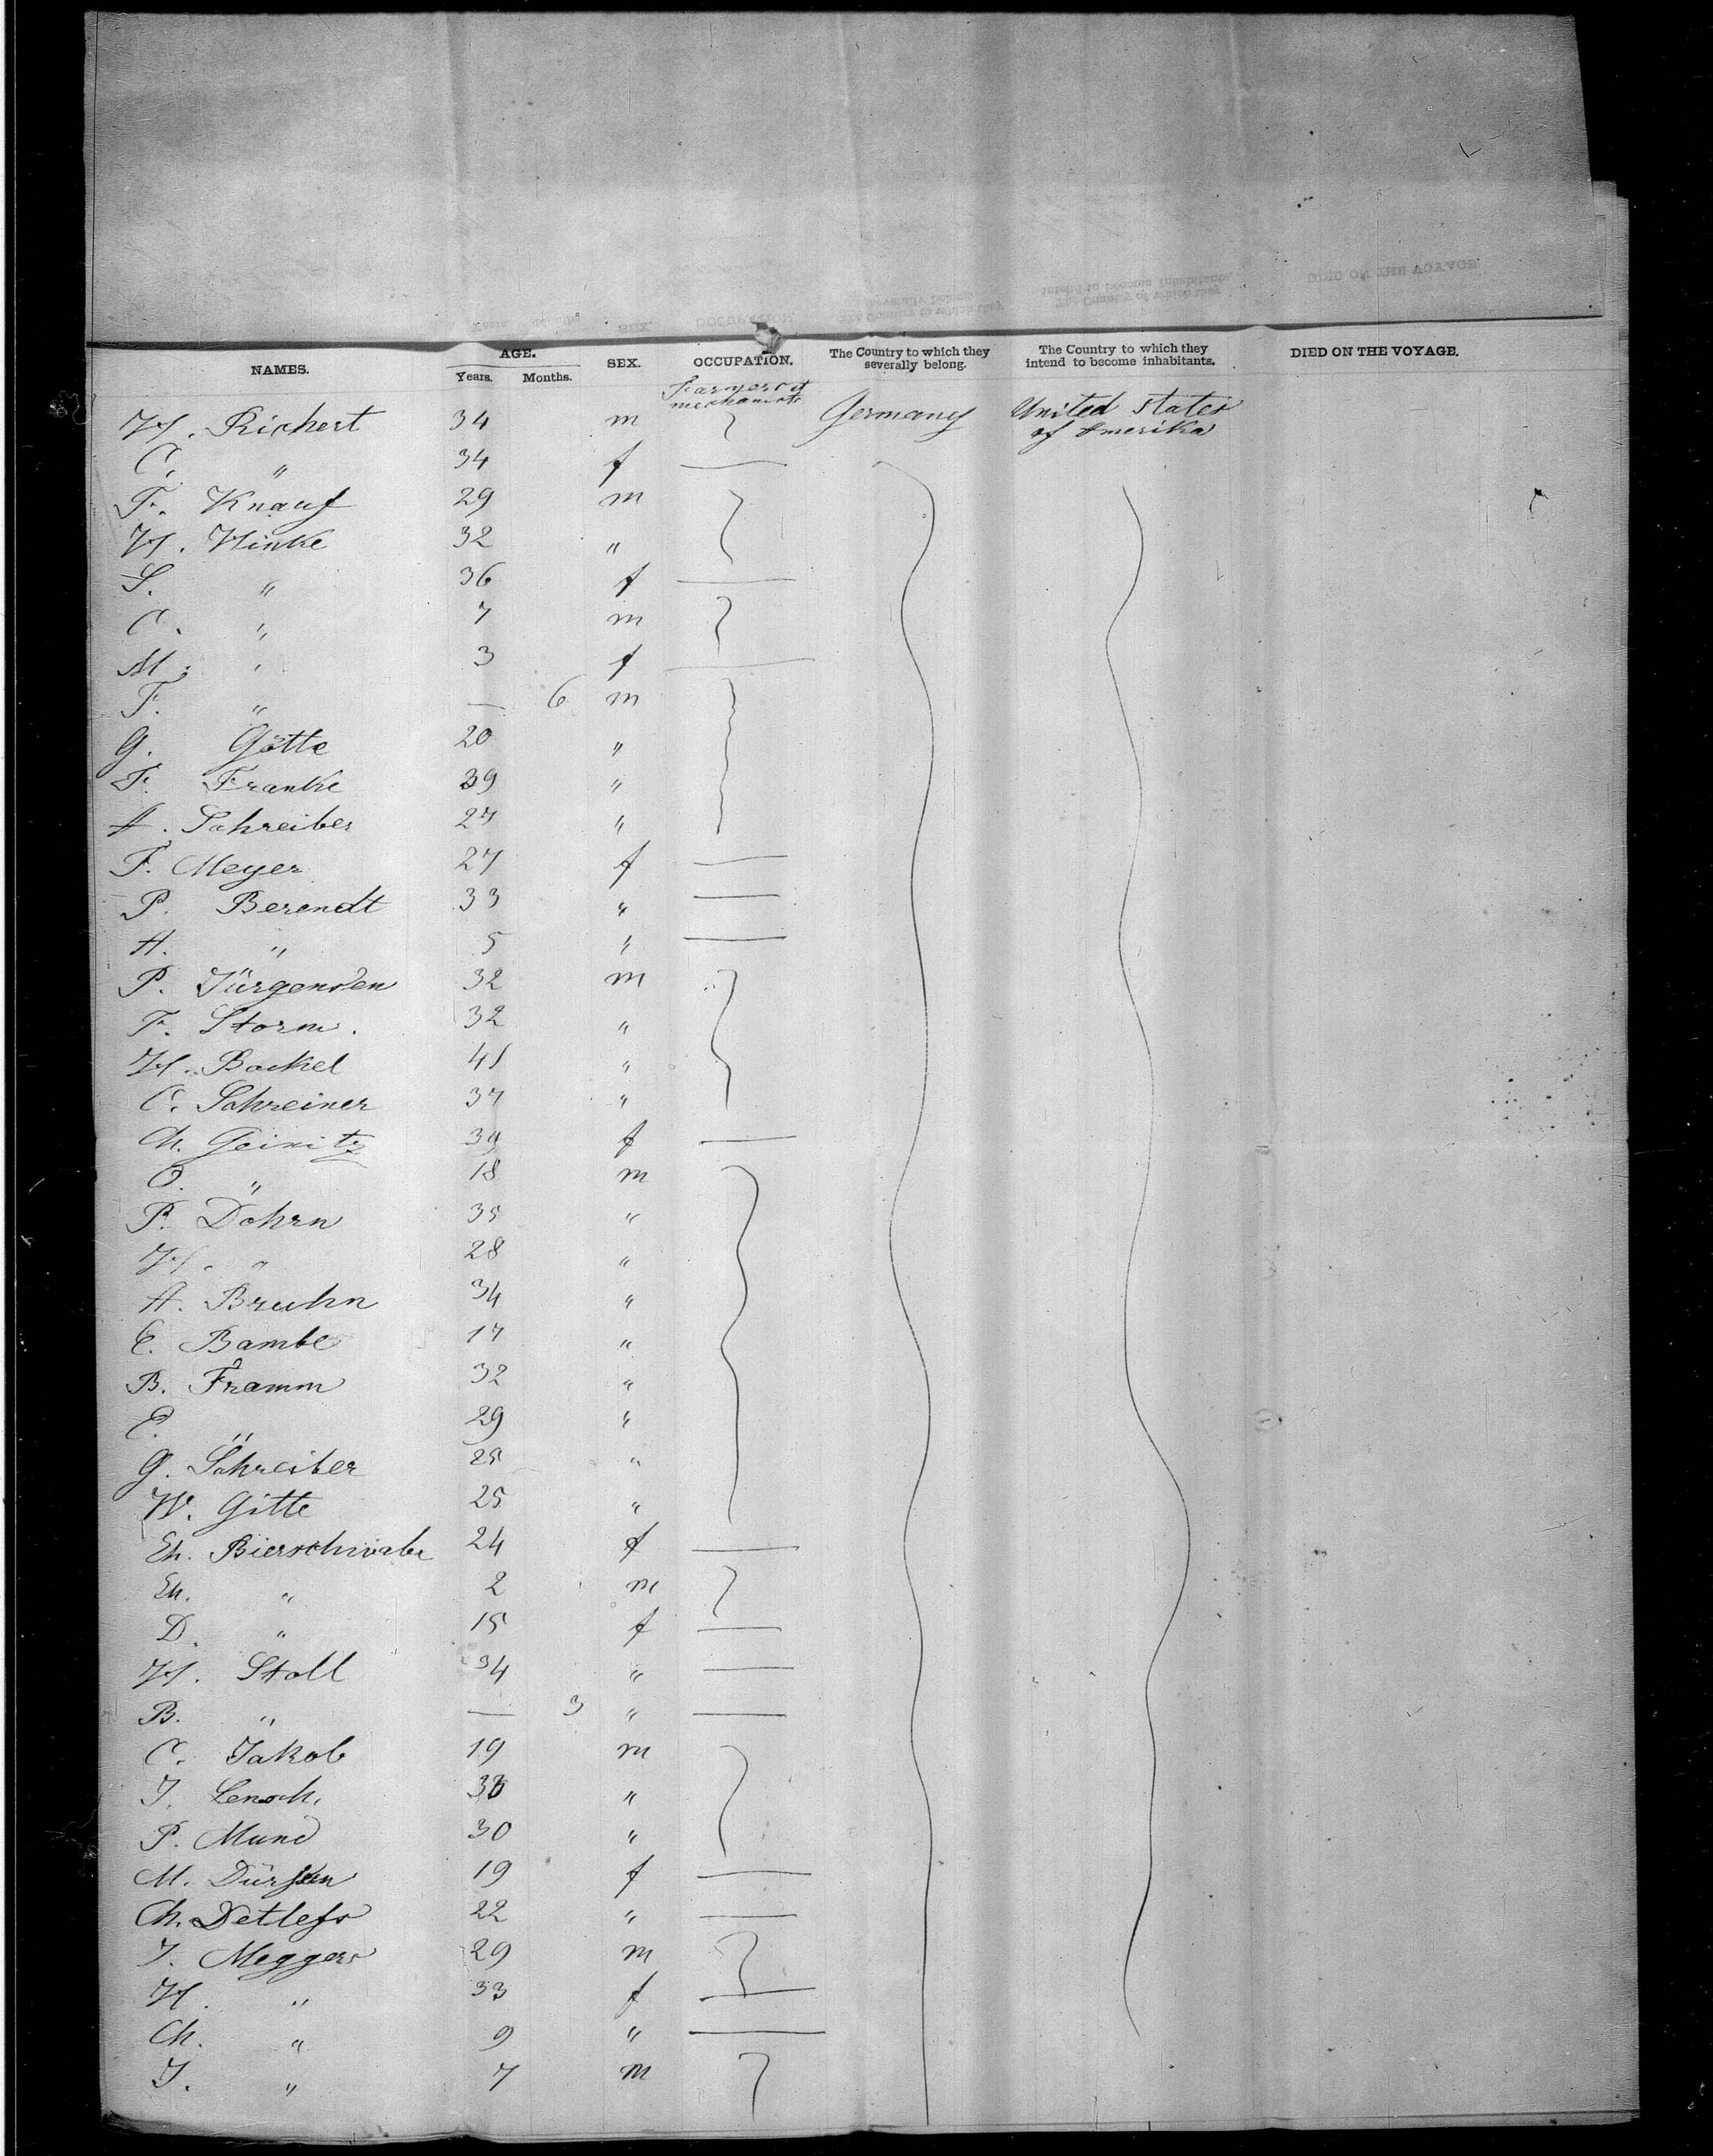 NAMES. AGE. SEX. OCCUPATION. The Country to which they severally belong. The Country to which they intend to become inhabitants. DIED ON THE VOYAGE.
Years. Months.
Farmers & mechanicts
H. Richert 34 m Germany United States of Amerika
C. " 34 f
F. Knauf 29 m
H. Hinke 32 "
S. " 36 f
C. " 7 m
M. " 3 f
F. " — 6 m
G. Götte 20 "
F. Franke 39 "
A. Schreiber 27 "
F. Meyer 27 f
P. Berendt 33 "
A. " 5 "
P. Jürgensen 32 m
F. Storm. 32 "
H. Bockel 41 "
C. Schreiner 37 "
Ch. Geinitz 39 f
O. " 18 m
P. Dohrn 35 "
H. " 28 "
A. Bruhn 34 "
E. Bambe 17 "
B. Framm 32 "
E. " 29 "
G. Schreiber 25 "
W. Gitte 25 "
Eh. Bierschwabe 24 f
Eh. " 2 m
D. " 15 f
H. Stoll 34 "
B. " — 3 "
C. Jakob 19 m
J. "
P. Mund 30 "
M. 19 f
Ch. Detlefs 22 "
J. Meggers 29 m
H. " 33 f
Ch. " 9 "
J. " 7 m